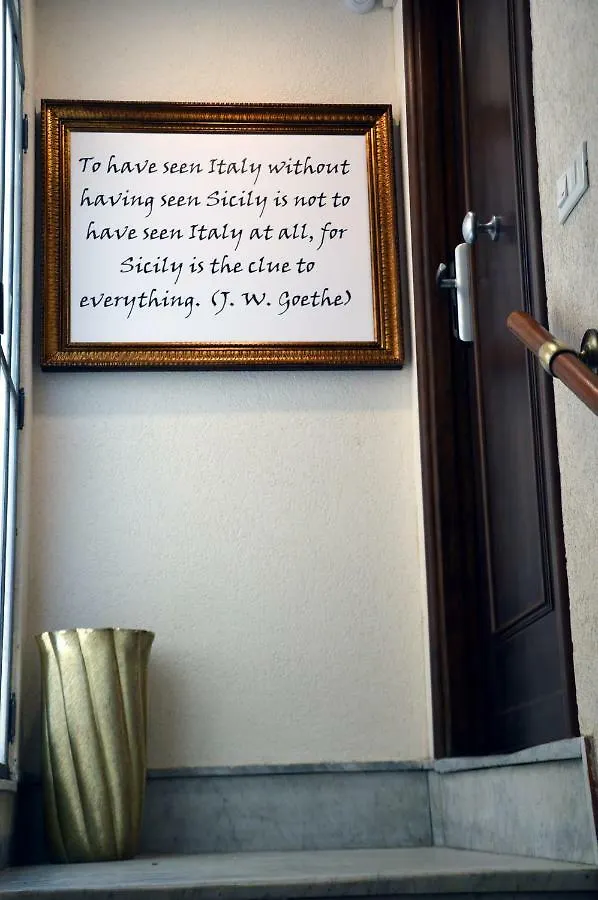 To have seen Italy without
having seen Sicily is not to
have seen Italy at all, for
Sicily is the clue to
everything. (J. W. Goethe)